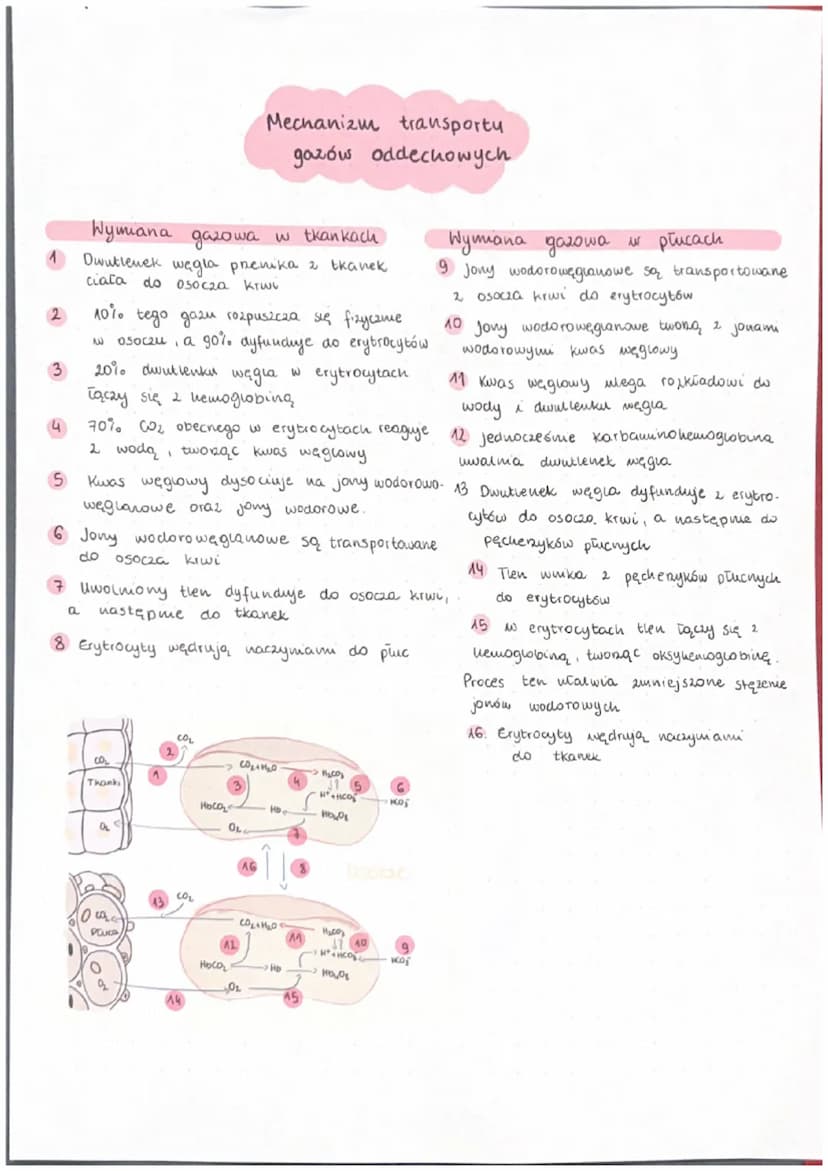 Mechanizm transportu
gazów oddechowych
Wymiana gazowa w tkankach
1 Dwutlenek węgla przenika z tkanek
ciała do osocza krwi
2 10% tego gazu rozpuszcza się fizycznie
w osoczu, a 90% dyfunduje do erytrocytów
3 20% dwutlenku węgla w erytrocytach
łączy się z hemoglobiną
4 70% CO₂ obecnego w erytrocytach reaguje
z wodą, tworząc kwas węglowy
5 Kwas węglowy dysocjuje na jony wodorowo-
węglanowe oraz jony wodorowe.
6 Jony wodorowęglanowe są transportowane
do osocza krwi
7 Uwolniony tlen dyfunduje do osocza krwi,
a następnie do tkanek
8 Erytrocyty wędrują naczyniami do płuc
Wymiana gazowa w płucach
9 Jony wodorowęglanowe są transportowane
z osocza krwi do erytrocytów
10 Jony wodorowęglanowe tworzą z jonami
wodorowymi kwas węglowy
11 Kwas węglowy ulega rozkładowi do
wody i dwutlenku węgla
12 Jednocześnie karbaminohemoglobina
uwalnia dwutlenek węgla
13 Dwutlenek węgla dyfunduje z erytro-
cytów do osocza krwi, a następnie do
pęcherzyków płucnych
14 Tlen wnika z pęcherzyków płucnych
do erytrocytów
15 W erytrocytach tlen łączy się z
hemoglobiną, tworząc oksyhemoglobinę.
Proces ten ułatwia zmniejszone stężenie
jonów wodorowych
16. Erytrocyty wędrują naczyniami
do tkanek
CO₂
2
CO₂
1
CO₂+H₂O
H₂CO₃
Tkanki
3
4
5
6
H⁺+HCO₃⁻
HCO₃⁻
HbCO₂
Hb
HbO₂
O₂
O₂
7
16
8
13
CO₂
CO₂
Płuca
CO₂+H₂O
H₂CO₃
12
11
10
9
H⁺+HCO₃⁻
HCO₃⁻
HbCO₂
Hb
HbO₂
O₂
O₂
14
15